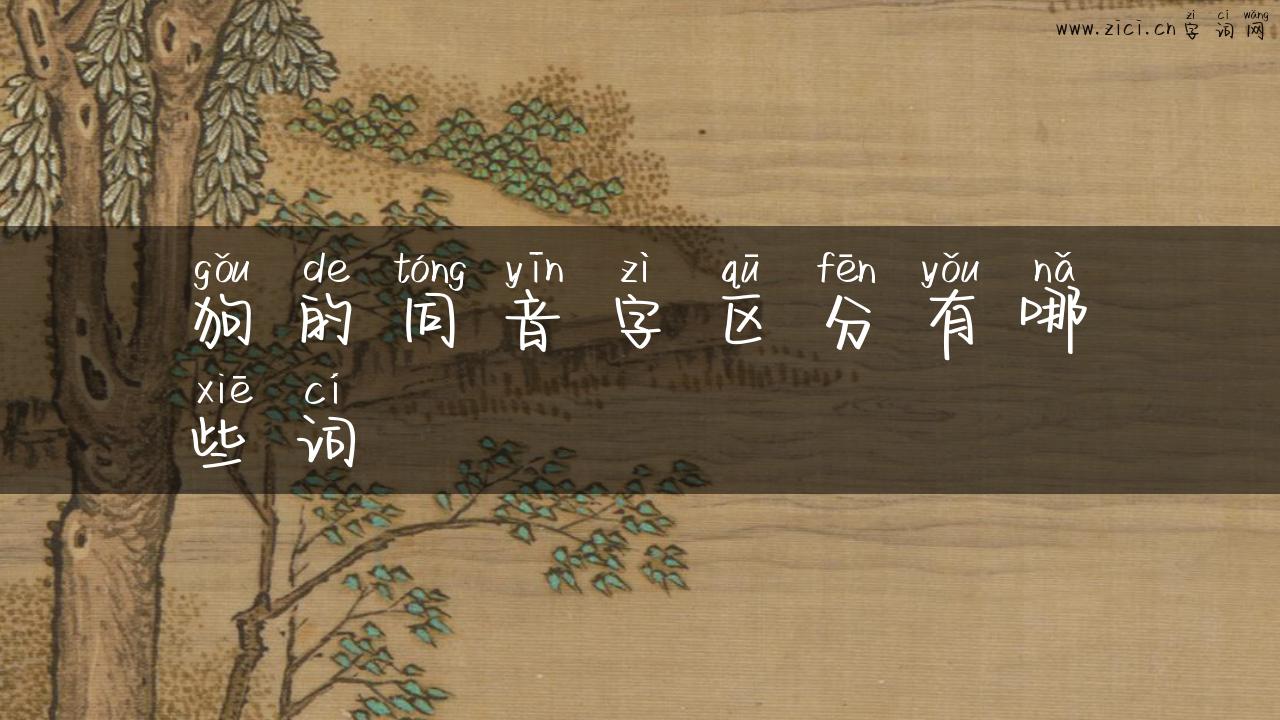 zì cí wǎng
www.zici.cn 字词网
gǒu de tóng yīn zì qū fēn yǒu nǎ
狗的同音字区分有哪
xiē cí
些词